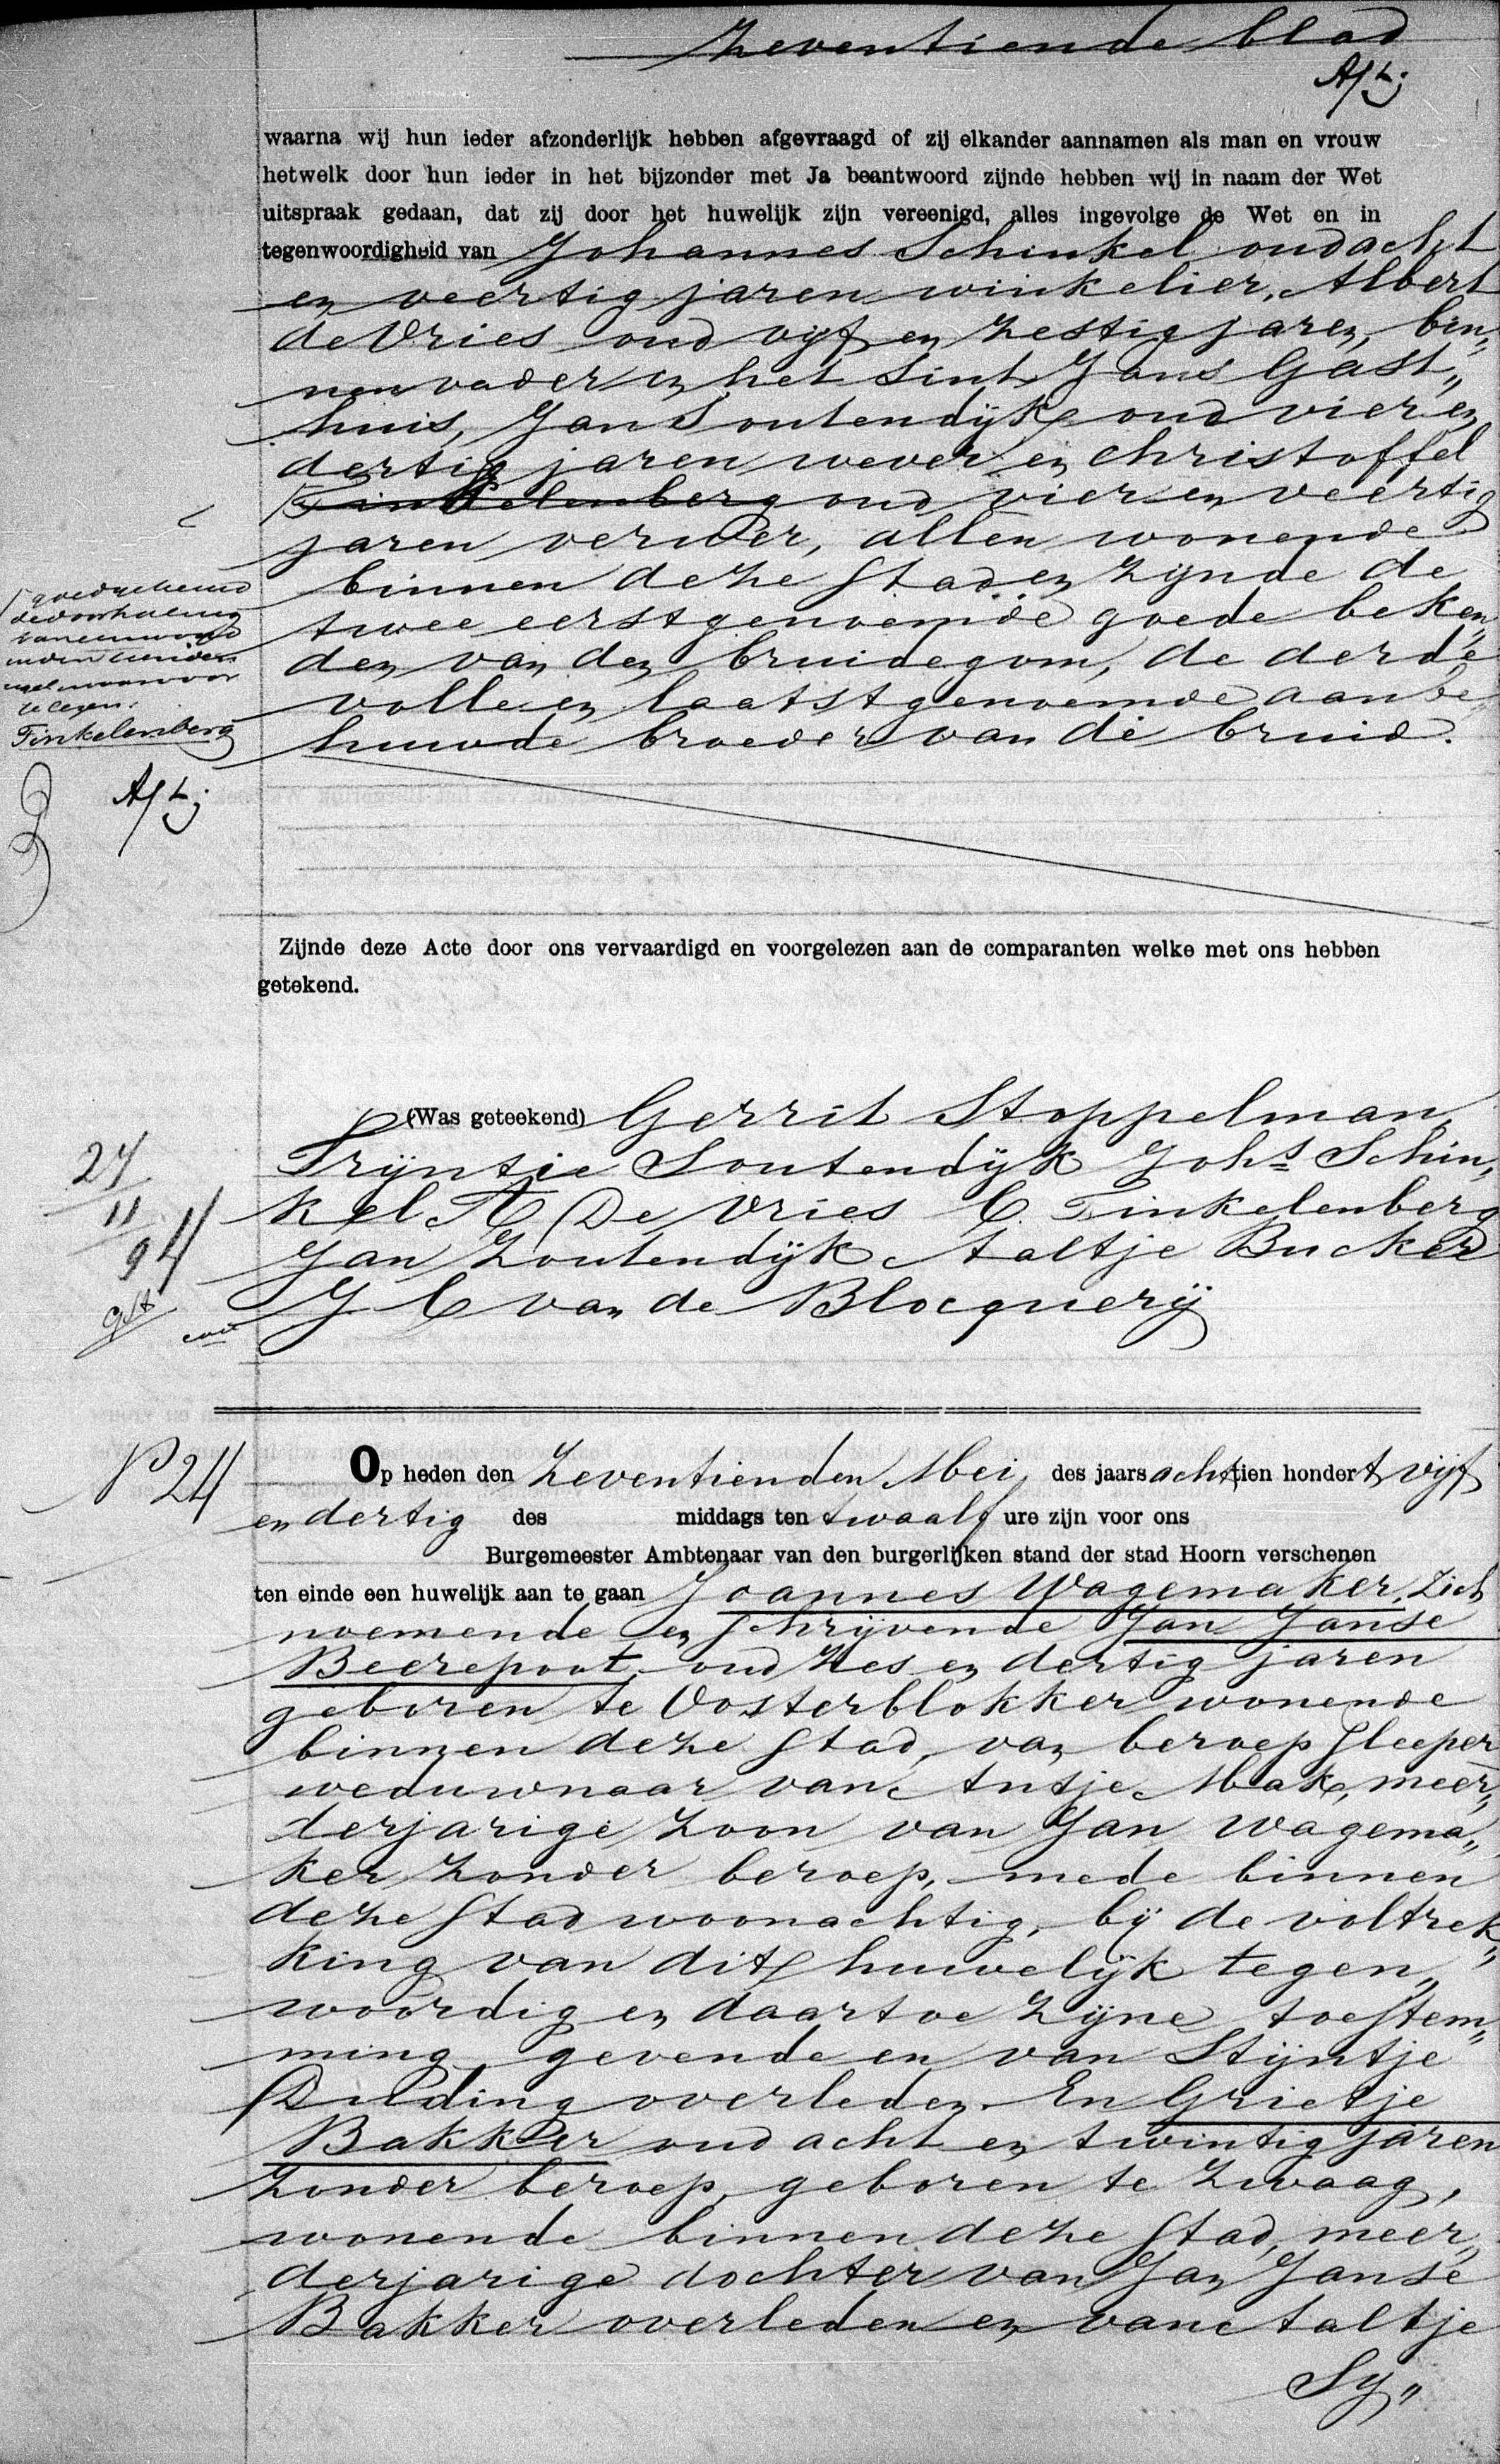 Zeventiende blad
waarna wij hun ieder afzonderlijk hebben afgevraagd of zij elkander aannamen als man en vrouw
hetwelk door hun ieder in het bijzonder met Ja beantwoord zijnde hebben wij in naam der Wet
uitspraak gedaan, dat zij door het huwelijk zijn vereenigd, alles ingevolge de Wet en in
tegenwoordigheid van Johannes Schinkel oud acht
en veertig jaren winkelier, Albert
de Vries oud vijf en zestig jaren, bin„
nenvader in het Sint Jans Gast„
huis, Jan Soutendijk oud vier en
dertig jaren wever en Christoffel
Finkelenberg oud vier en veertig
jaren verwer, allen wonende
binnen deze stad en zijnde de
twee eerstgenoemde goede beken„
den van den bruidegom, de derde
volle en laatstgenoemde aanbe„
huwde broeder van de bruid.
goedgekeurd
de doorhaling
van een woord
in den tienden
regel waarvoor
te lezen:
Finkelenberg
Zijnde deze Acte door ons vervaardigd en voorgelezen aan de comparanten welke met ons hebben
getekend.
(Was geteekend) Gerrit Stoppelman
Trijntje Soutendijk Johs Schin„
kel A De Vries C. Finkelenberg
Jan Zoutendijk Aaltje Bucker
J C van de Blocquerij
24
11
94
No 24
Op heden den Zeventienden Mei des jaars achttien hondert vijf
en dertig des middags ten twaalf ure zijn voor ons
Burgemeester Ambtenaar van den burgerlijken stand der stad Hoorn verschenen
ten einde een huwelijk aan te gaan Joannes Wagemaker, zich
noemende en schrijvende Jan Janse
Beerepoot, oud zes en dertig jaren
geboren te Oosterblokker wonende
binnen deze stad, van beroep sleeper
weduwnaar van Antje Mak, meer„
derjarige zoon van Jan Wagema„
ker zonder beroep, mede binnen
deze stad woonachtig, bij de voltrek„
king van dit huwelijk tegen„
woordig en daartoe zijne toestem„
ming gevende en van Stijntje
Dulding overleden. En Grietje
Bakker oud acht en twintig jaren
zonder beroep, geboren te Zwaag,
wonende binnen deze stad, meer„
derjarige dochter van Jan Janse
Bakker overleden en van Aaltje
Sy„